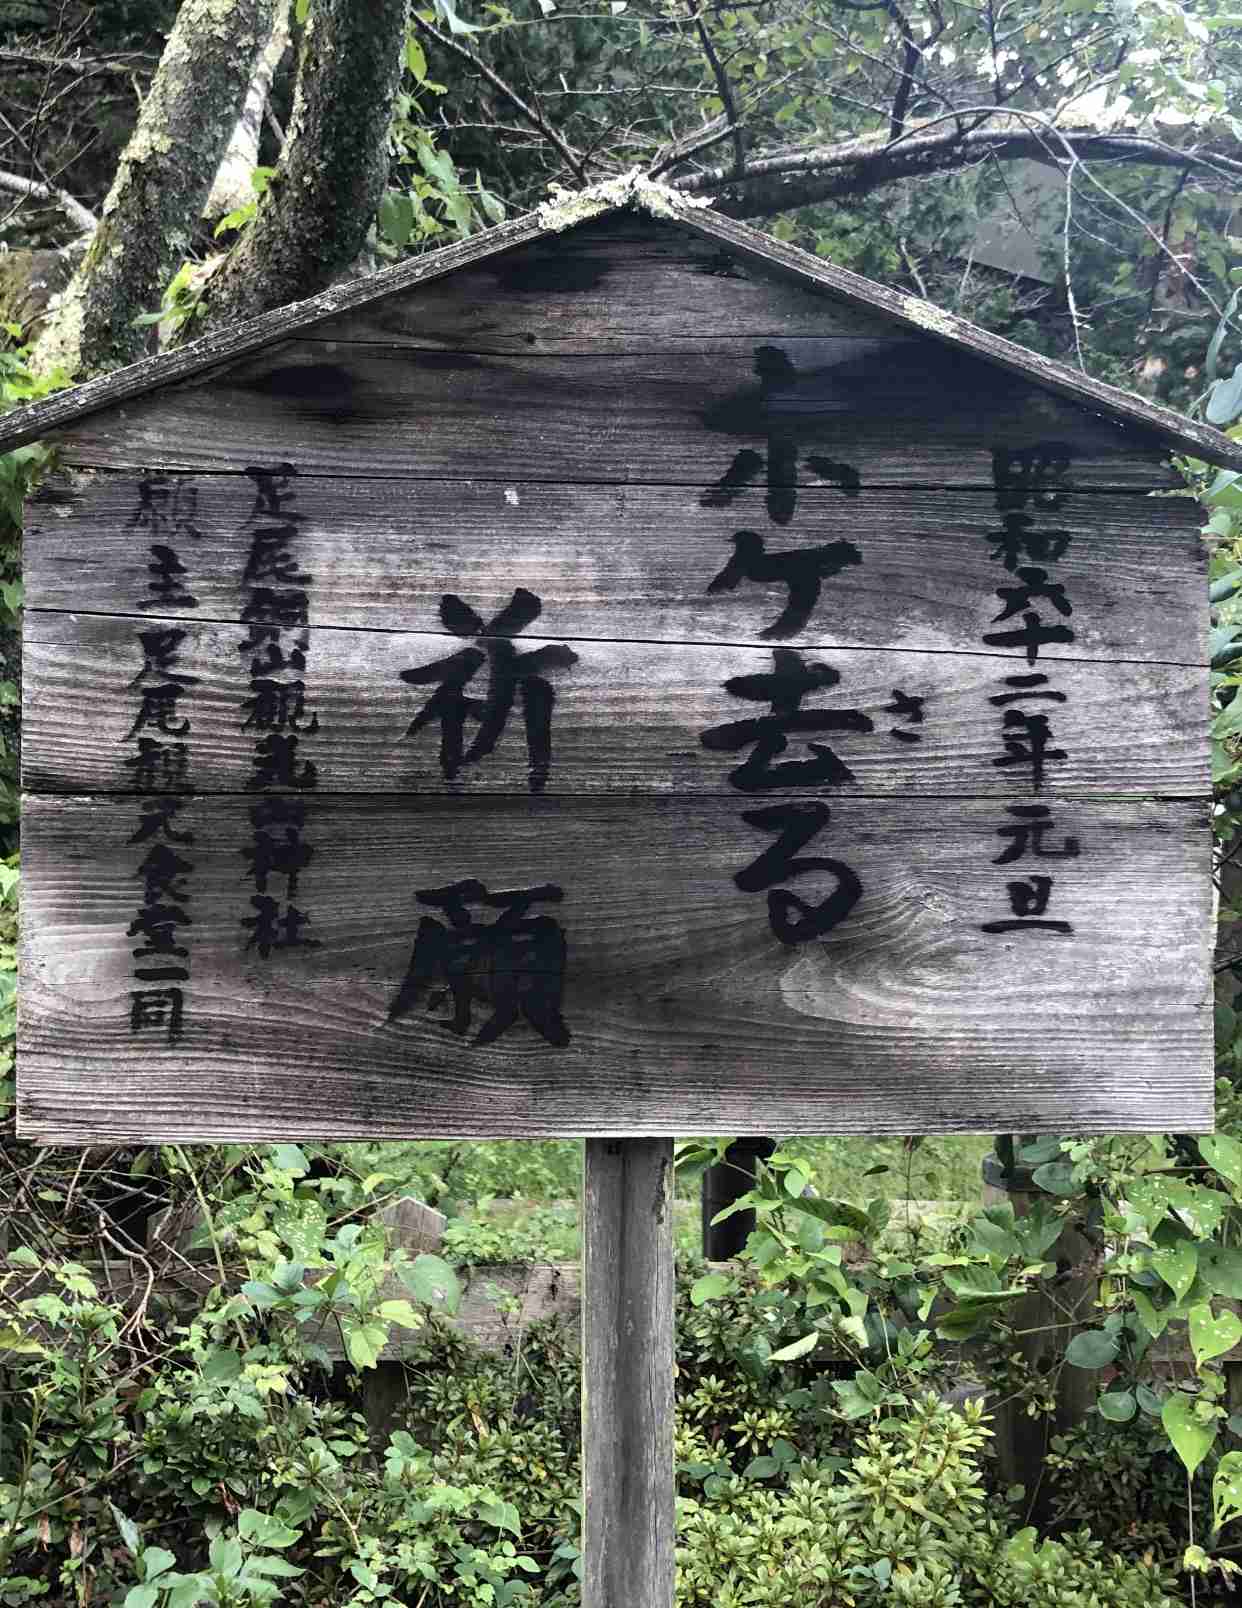 昭和六十二年元旦
ボケ去る
さ
祈願
足尾銅山観光山神社
願主足尾観光食堂一同